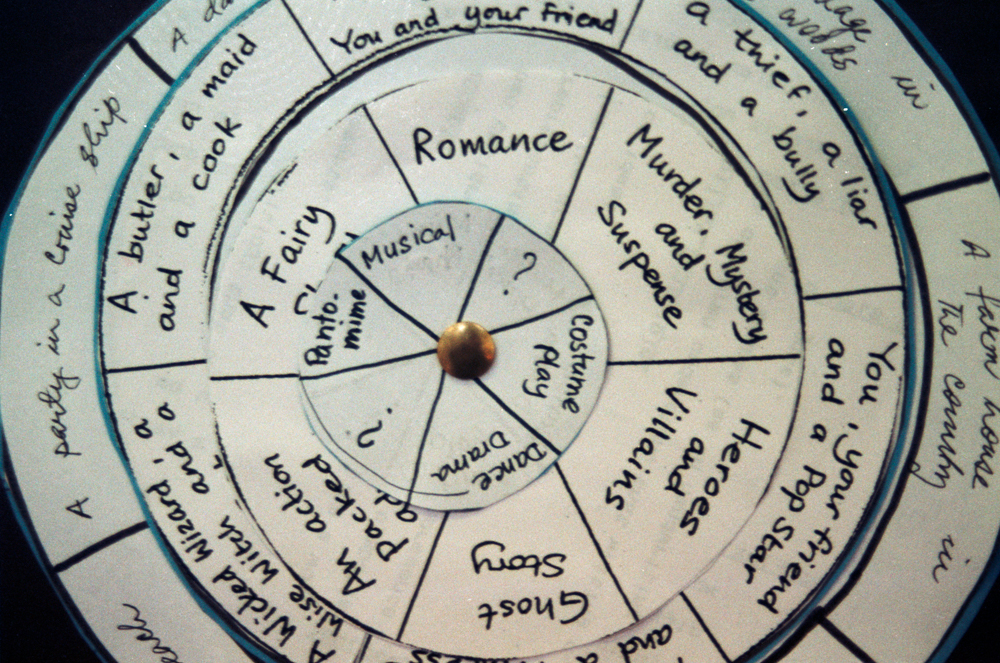 Musical
?
Costume
Play
Dance
Drama
?
Panto.
mime
Romance
Murder, Mystery
and
Suspense
Heroes
and
Villains
Ghost
Story
An action
packed
A Fairy
You and your friend
a thief, a liar
and a bully
You, your friend
and a Pop Star
and a
A Wicked Wizard
and a
Wise Witch
A butler, a maid
and a cook
A
woods in
A farm house in
the country
A party in a Cruise Ship